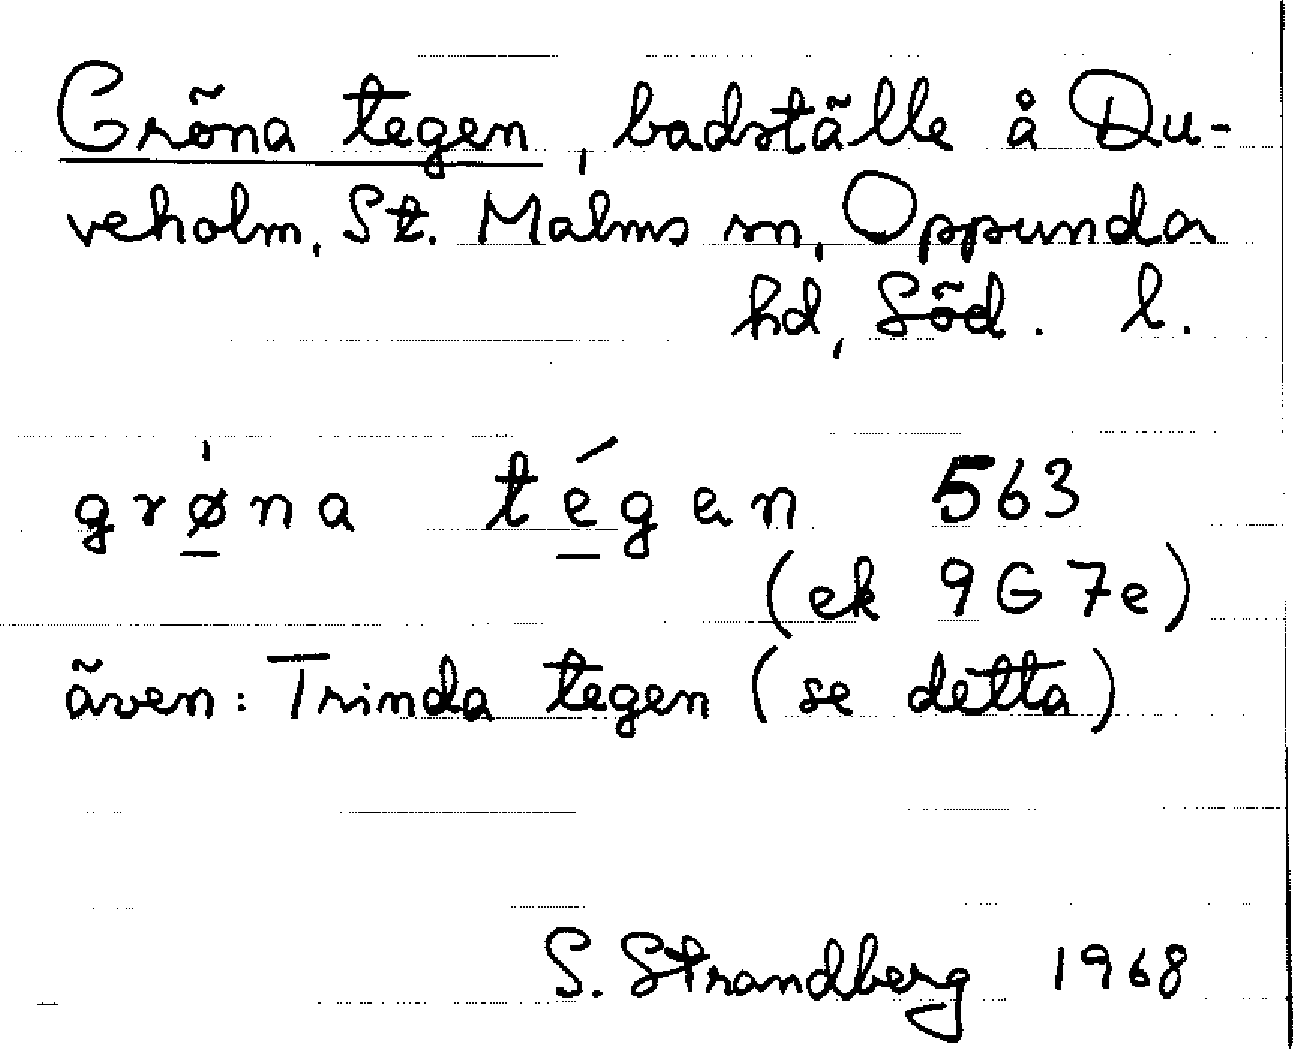 Gröna tegen, badställe å Du-
veholm, St. Malms sn, Oppunda
hd, Söd. l.
grǿ̱na té̱gen 563
(ek 9G7e)
även: Trinda tegen (se detta)
S. Strandberg 1968